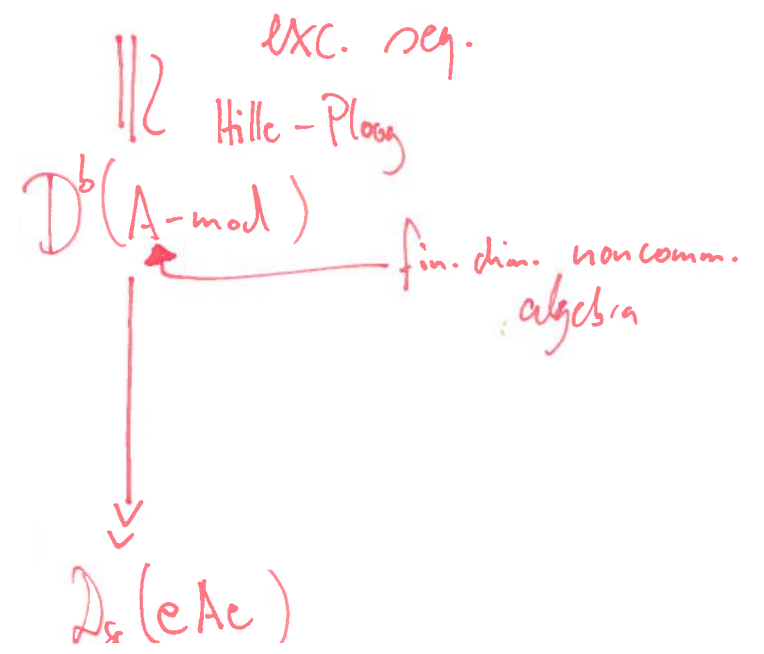 exc. seq.
Hille-Ploog
D^b(A-mod)
fin. dim. noncomm.
algebra
D_sg(eAe)